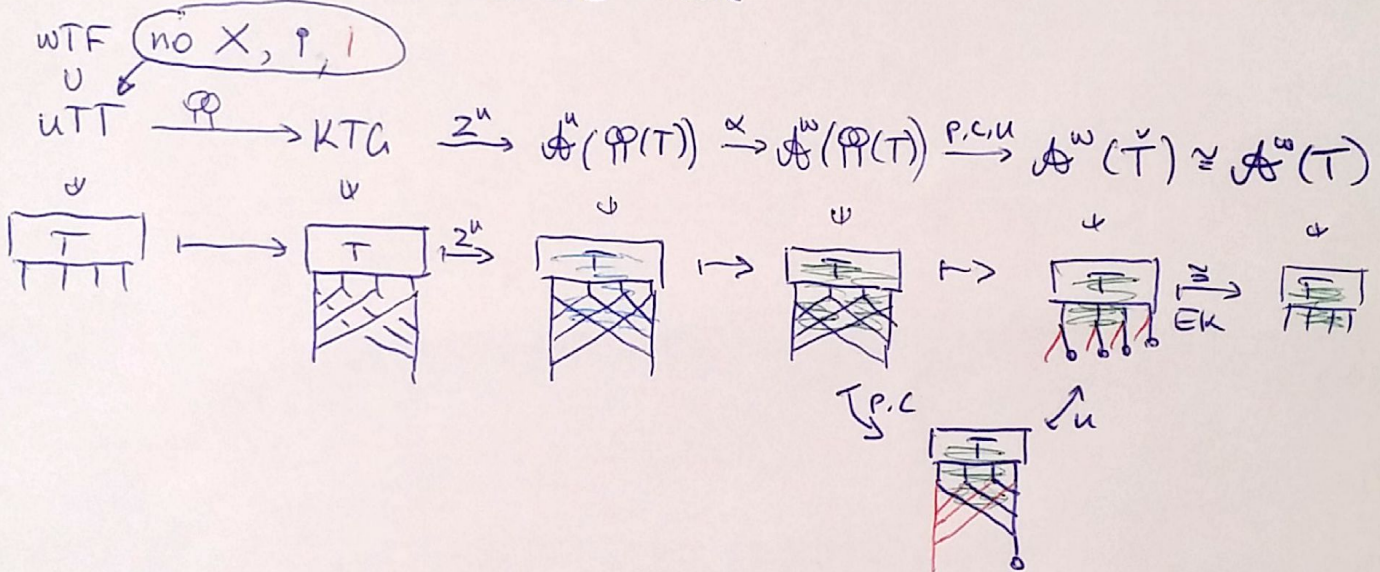 wTF no X, ↑, |
∪
uTT → KTG Zᵘ→ 𝒜ᵘ(φφ(T)) α→ 𝒜ʷ(φφ(T)) P.C,u→ 𝒜ʷ(Ť) ≅ 𝒜ʷ(T)
T ↦ T Zᵘ↦ T ↦ T ↦ T ≅ EK T
P.C u
T